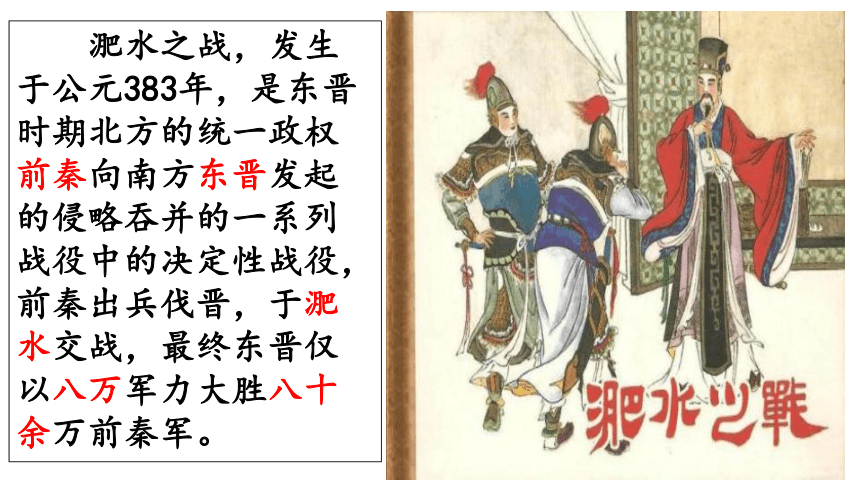 淝水之战，发生
于公元383年，是东晋
时期北方的统一政权
前秦向南方东晋发起
的侵略吞并的一系列
战役中的决定性战役，
前秦出兵伐晋，于淝
水交战，最终东晋仅
以八万军力大胜八十
余万前秦军。
淝水之戰